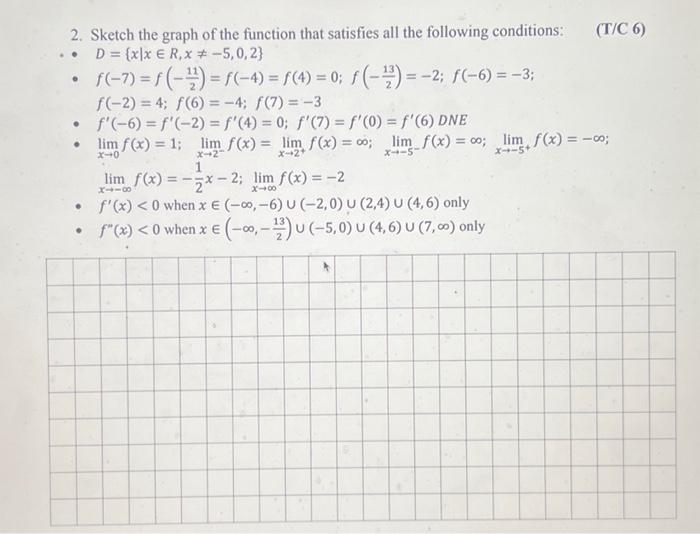 2. Sketch the graph of the function that satisfies all the following conditions: (T/C 6)
• D = {x|x ∈ R, x ≠ −5, 0, 2}
• f(−7) = f(−11/2) = f(−4) = f(4) = 0; f(−13/2) = −2; f(−6) = −3;
f(−2) = 4; f(6) = −4; f(7) = −3
• f'(−6) = f'(−2) = f'(4) = 0; f'(7) = f'(0) = f'(6) DNE
• lim x→0 f(x) = 1; lim x→2⁻ f(x) = lim x→2⁺ f(x) = ∞; lim x→−5⁻ f(x) = ∞; lim x→−5⁺ f(x) = −∞;
lim x→−∞ f(x) = −1/2 x − 2; lim x→∞ f(x) = −2
• f'(x) < 0 when x ∈ (−∞, −6) ∪ (−2, 0) ∪ (2,4) ∪ (4, 6) only
• f"(x) < 0 when x ∈ (−∞, −13/2) ∪ (−5, 0) ∪ (4, 6) ∪ (7, ∞) only